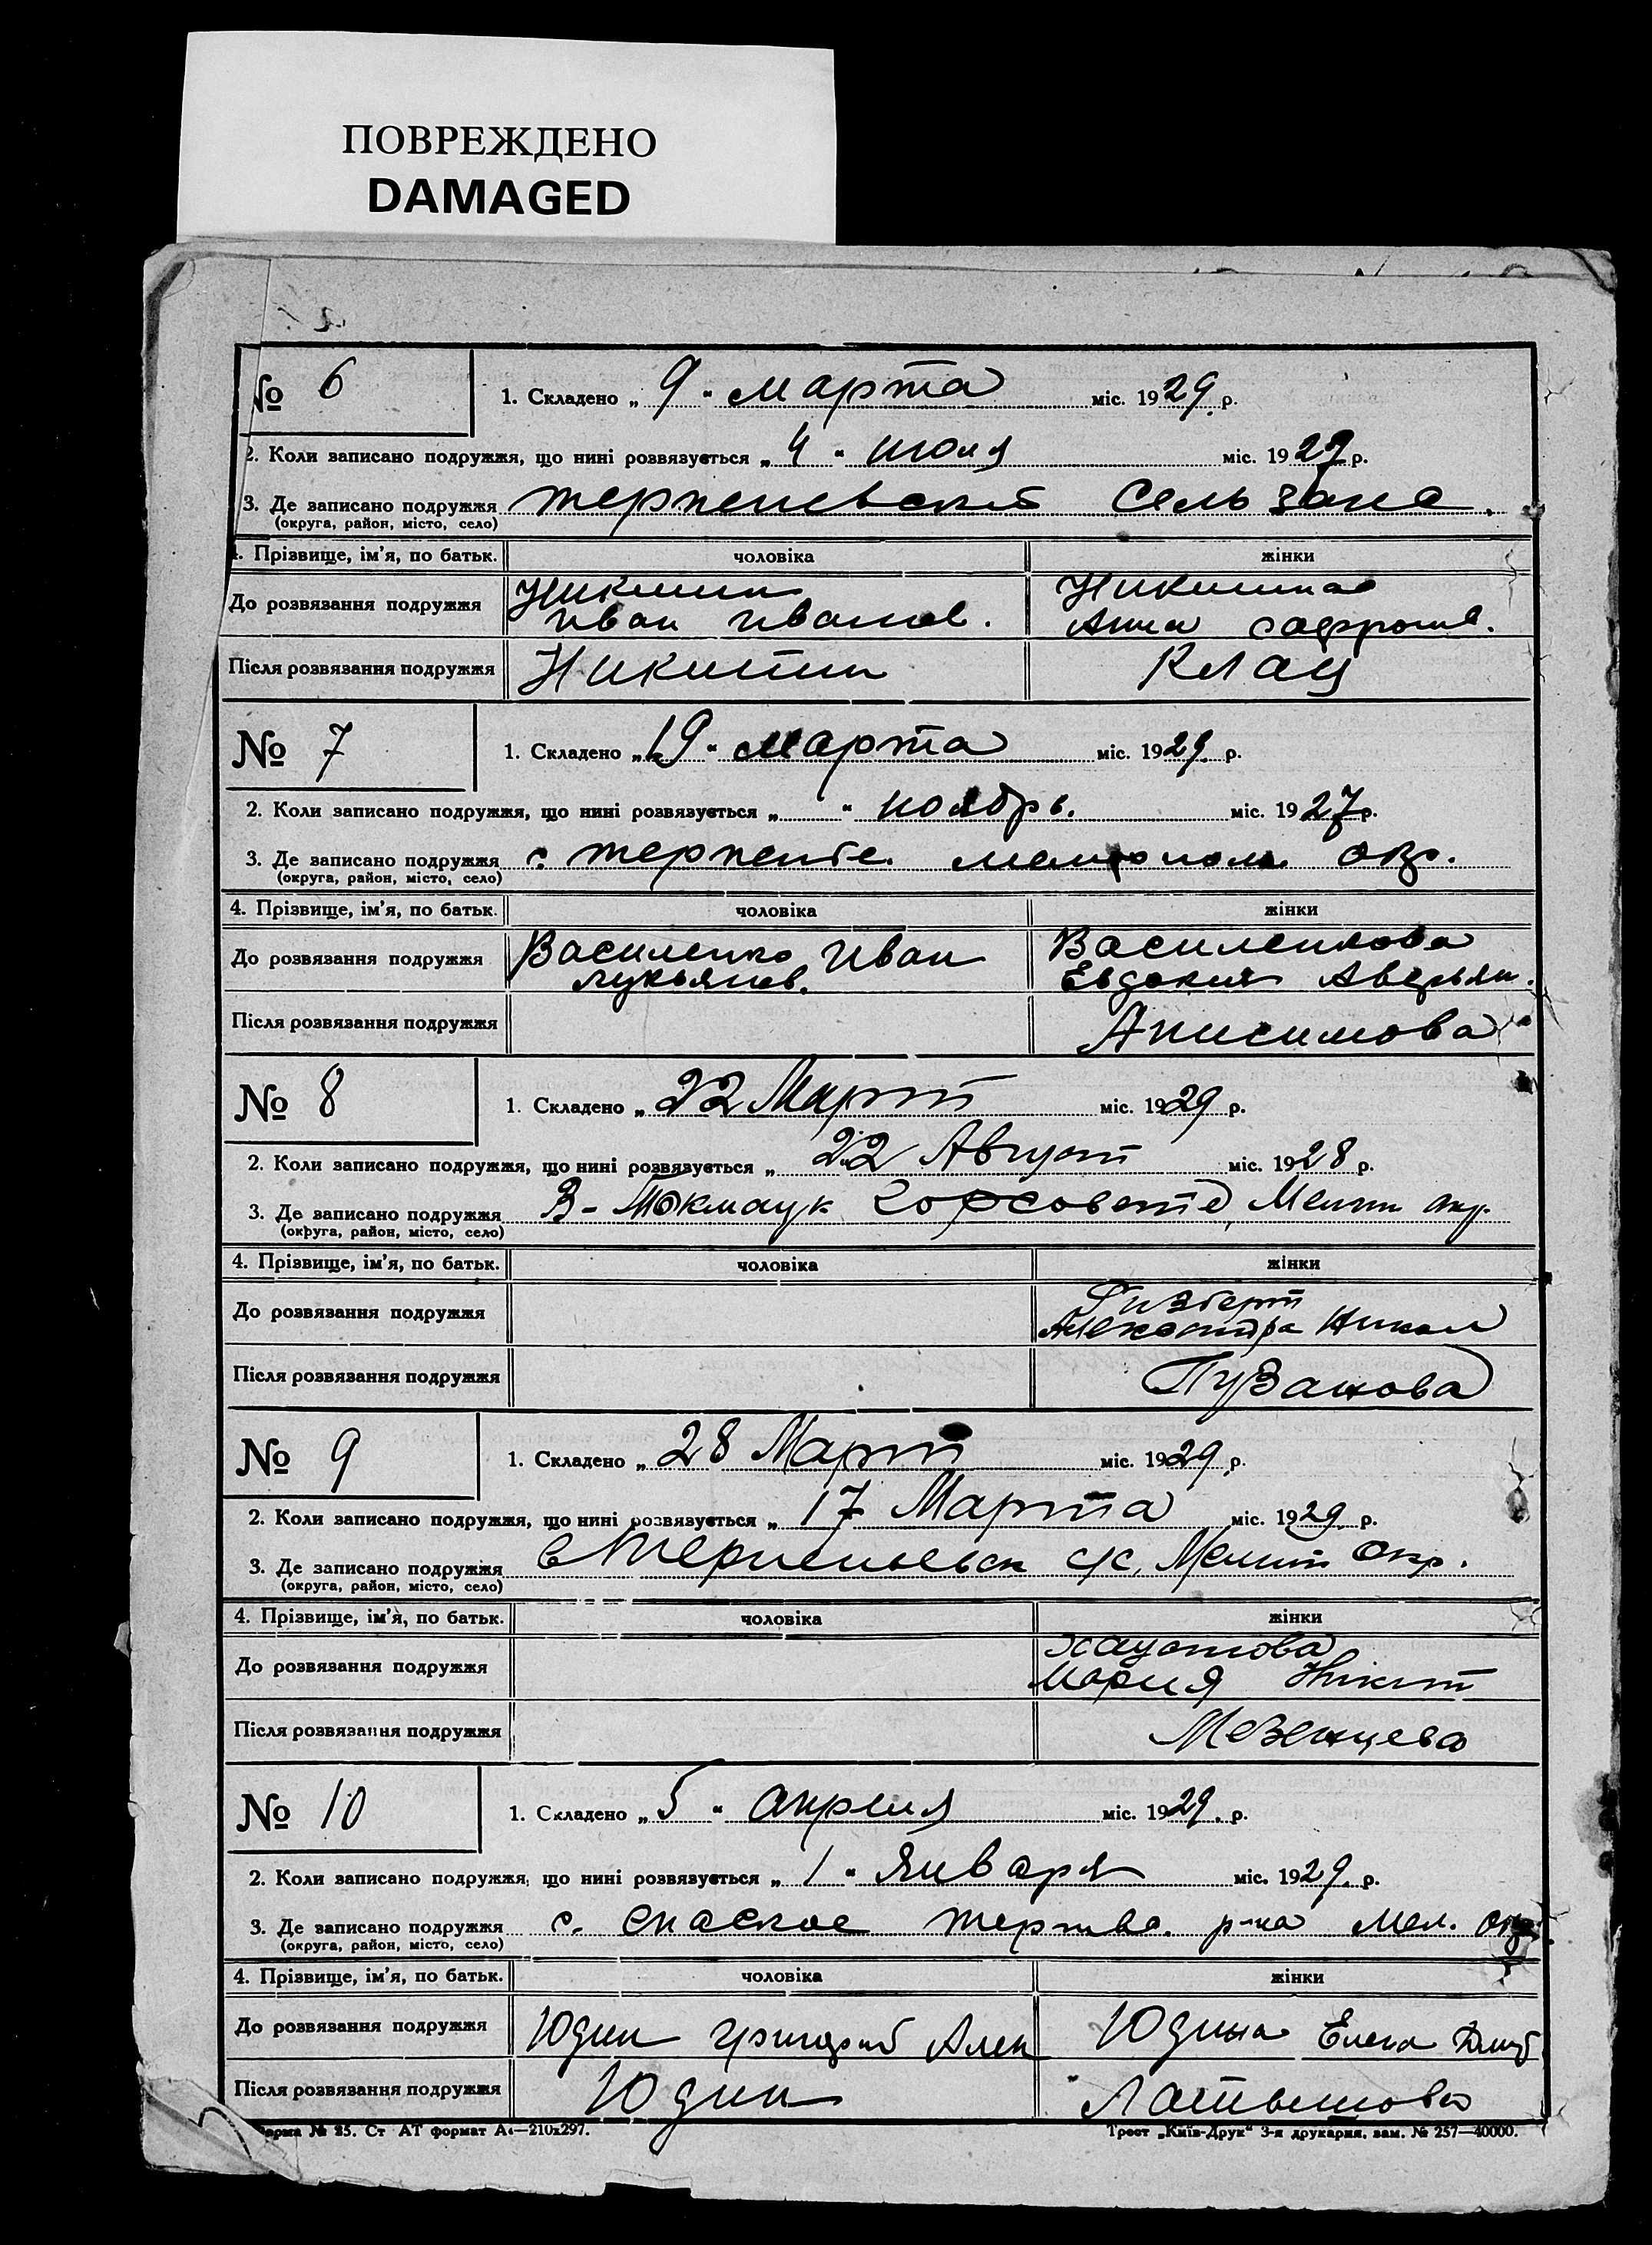 ПОВРЕЖДЕНО
DAMAGED
№ 6
1. Складено „ 9 “ марта міс. 1929 р.
2. Коли записано подружжя, що нині розвязується „ 4 “ июля міс. 1927 р.
3. Де записано подружжя
(округа, район, місто, село)
4. Прізвище, ім’я, по батьк. чоловіка жінки
До розвязання подружжя
Никитин
Иван Иванов.
Анна
Після розвязання подружжя Никитин Клац
№ 7
1. Складено „ 19 “ марта міс. 1929. р.
2. Коли записано подружжя, що нині розвязується „ “ ноябрь. міс. 1927 р.
3. Де записано подружжя с. терпение. мелитополь. окр.
(округа, район, місто, село)
4. Прізвище, ім’я, по батьк. чоловіка жінки
До розвязання подружжя
Василенко Иван
Лукьянов.
Василенкова
Евдокия Аверьян.
Після розвязання подружжя Анисимова
№ 8
1. Складено „ 22 Март міс. 1929 р.
2. Коли записано подружжя, що нині розвязується „ 22 Август міс. 1928 р.
3. Де записано подружжя В-Токмаук Мелит окр.
(округа, район, місто, село)
4. Прізвище, ім’я, по батьк. чоловіка жінки
До розвязання подружжя
Александра Никол
Після розвязання подружжя Пузанова
№ 9
1. Складено „ 28 Март міс. 1929 р.
2. Коли записано подружжя, що нині розвязується „ 17 Марта міс. 1929 р.
3. Де записано подружжя с/с, Мелит Окр.
(округа, район, місто, село)
4. Прізвище, ім’я, по батьк. чоловіка жінки
До розвязання подружжя
Хаустова
Мария Никит
Після розвязання подружжя Мезенцева
№ 10
1. Складено „ 5 “ апреля міс. 1929. р.
2. Коли записано подружжя, що нині розвязується „ 1 “ января міс. 1929. р.
3. Де записано подружжя с. спаское р-на мел. окр
(округа, район, місто, село)
4. Прізвище, ім’я, по батьк. чоловіка жінки
До розвязання подружжя Юдин Григорий Алек Юдина Елена
Після розвязання подружжя Юдин Латышова
Форма № 25. Ст АТ формат А4—210х297. Трест „Київ-Друк“ 3-я друкарня, зам. № 257—40000.